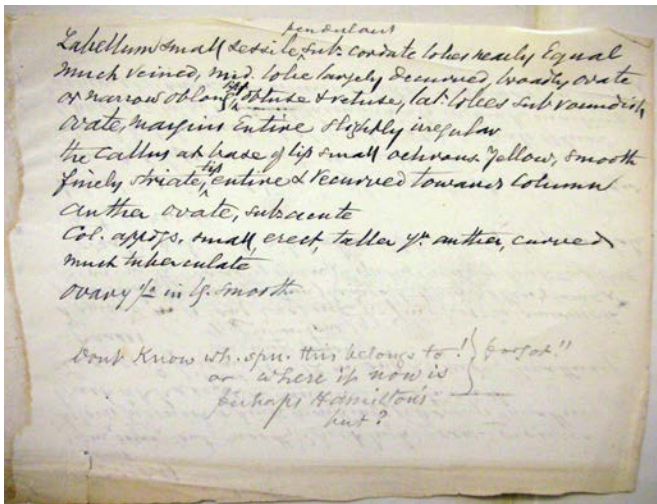 pendulant
Labellum small sessile, sub. cordate lobes nearly Equal
much veined, mid. lobe largely decurved, broadly ovate
or narrow oblong, tip obtuse & retuse, lat. lobes sub roundish
ovate, margins Entire slightly irregular
the Callus at base of lip small ochrous yellow, smooth
finely striate, tip entire & recurved towards Column
anther ovate, subacute
Col. appdgs. small, erect, taller yn. anther, curved
much tuberculate
ovary 1/2 in lg. smooth
Dont Know wh. spn. this belongs to! forgot!!
or where it now is
perhaps Hamilton's
but?